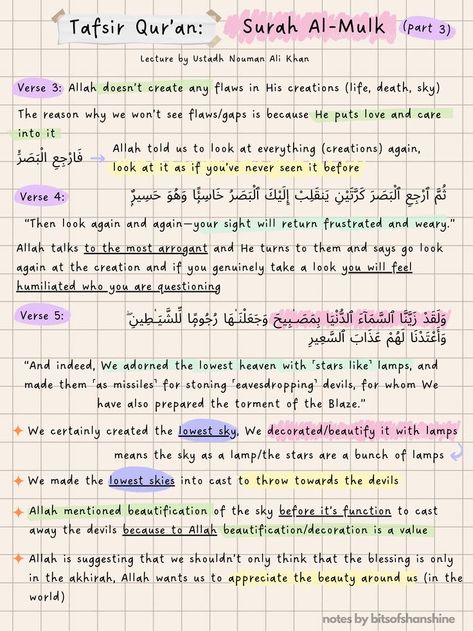 Tafsir Qur'an: Surah Al-Mulk (part 3)
Lecture by Ustadh Nouman Ali Khan
Verse 3: Allah doesn't create any flaws in His creations (life, death, sky)
The reason why we won't see flaws/gaps is because He puts love and care
into it
Allah told us to look at everything (creations) again,
فَارْجِعِ الْبَصَرَ → look at it as if you've never seen it before
Verse 4: ثُمَّ ٱرْجِعِ ٱلْبَصَرَ كَرَّتَيْنِ يَنقَلِبْ إِلَيْكَ ٱلْبَصَرُ خَاسِئًا وَهُوَ حَسِيرٌ
"Then look again and again—your sight will return frustrated and weary."
Allah talks to the most arrogant and He turns to them and says go look
again at the creation and if you genuinely take a look you will feel
humiliated who you are questioning
Verse 5: وَلَقَدْ زَيَّنَّا ٱلسَّمَآءَ ٱلدُّنْيَا بِمَصَـٰبِيحَ وَجَعَلْنَـٰهَا رُجُومًا لِّلشَّيَـٰطِينِ ۖ
وَأَعْتَدْنَا لَهُمْ عَذَابَ ٱلسَّعِيرِ
"And indeed, We adorned the lowest heaven with ˹stars like˺ lamps, and
made them ˹as missiles˺ for stoning ˹eavesdropping˺ devils, for whom We
have also prepared the torment of the Blaze."
We certainly created the lowest sky, We decorated/beautify it with lamps
means the sky as a lamp/the stars are a bunch of lamps
We made the lowest skies into cast to throw towards the devils
Allah mentioned beautification of the sky before it's function to cast
away the devils because to Allah beautification/decoration is a value
Allah is suggesting that we shouldn't only think that the blessing is only
in the akhirah, Allah wants us to appreciate the beauty around us (in the
world)
notes by bitsofshanshine